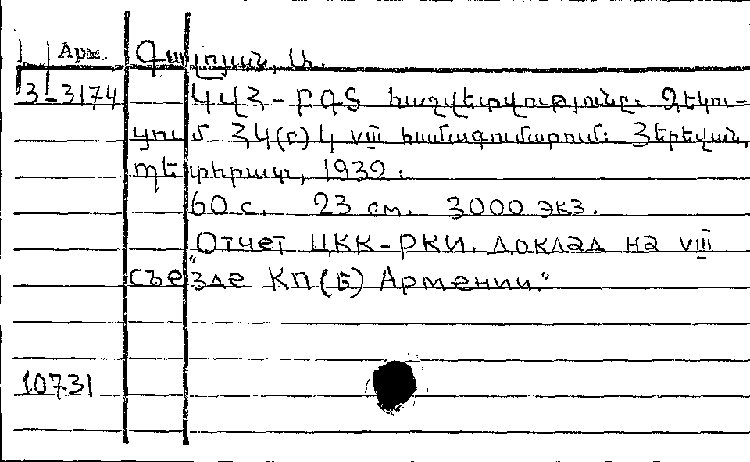 Арм. Գալոյան, Ա.
3-3174 ԿՎՀ-ԲԳՏ հաշվետվությունը. Զեկու-
ցում ՀԿ(բ)Կ VIII համագումարում: Յերեվան,
պետհրատ, 1932:
60 с. 23 см. 3000 экз.
"Отчет ЦКК-РКИ. Доклад на VIII
съезде КП(Б) Армении."
10731